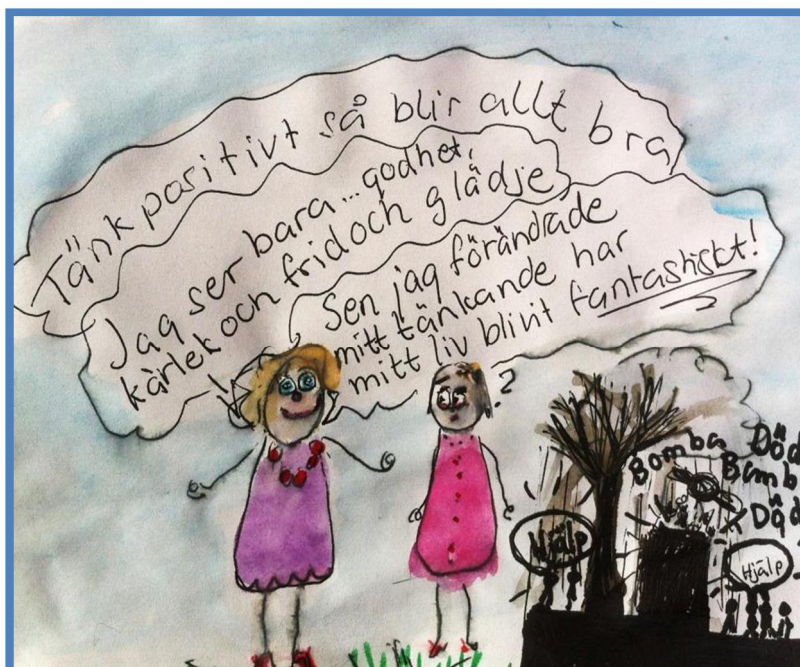 Tänk positivt så blir allt bra
Jag ser bara... godhet,
kärlek och frid och glädje
Sen jag förändrade
mitt tänkande har
mitt liv blivit fantastiskt!
!
?
Bomba Död
Bomb
Död
Hjälp
Hjälp